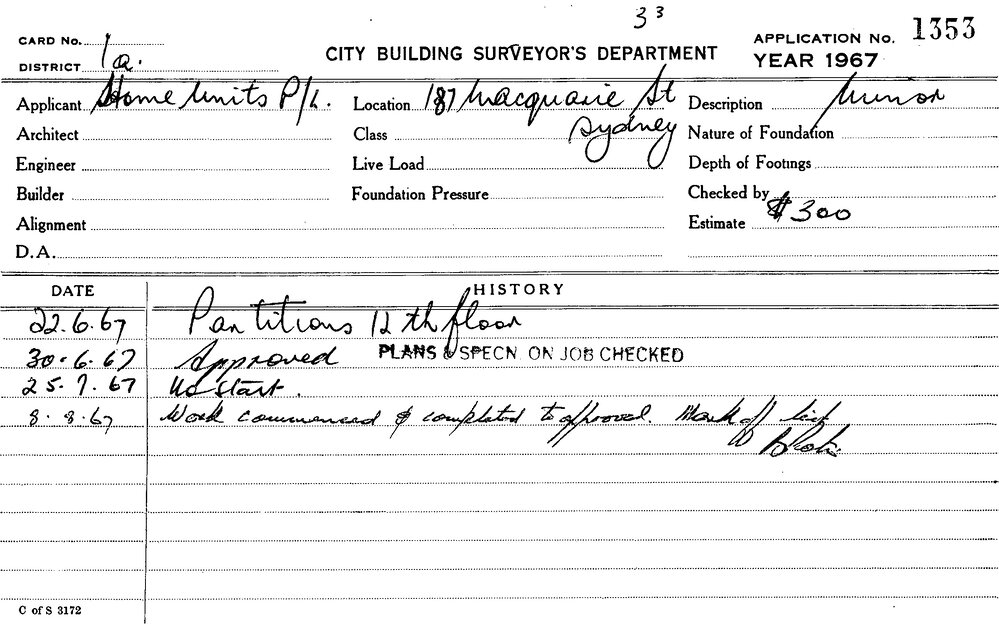 33
CARD No. 1a. CITY BUILDING SURVEYOR'S DEPARTMENT APPLICATION No. 1353
DISTRICT YEAR 1967
Applicant Home Units P/L. Location 187 Macquarie St Description Minor
Architect Class Sydney Nature of Foundation
Engineer Live Load Depth of Footings
Builder Foundation Pressure Checked by
Alignment Estimate $300
D.A.
DATE HISTORY
22.6.67 Partitions 12th floor
30.6.67 Approved PLANS & SPECN. ON JOB CHECKED
25.7.67 No start.
8.8.67 Work commenced & completed to approval. Mark off
C of S 3172